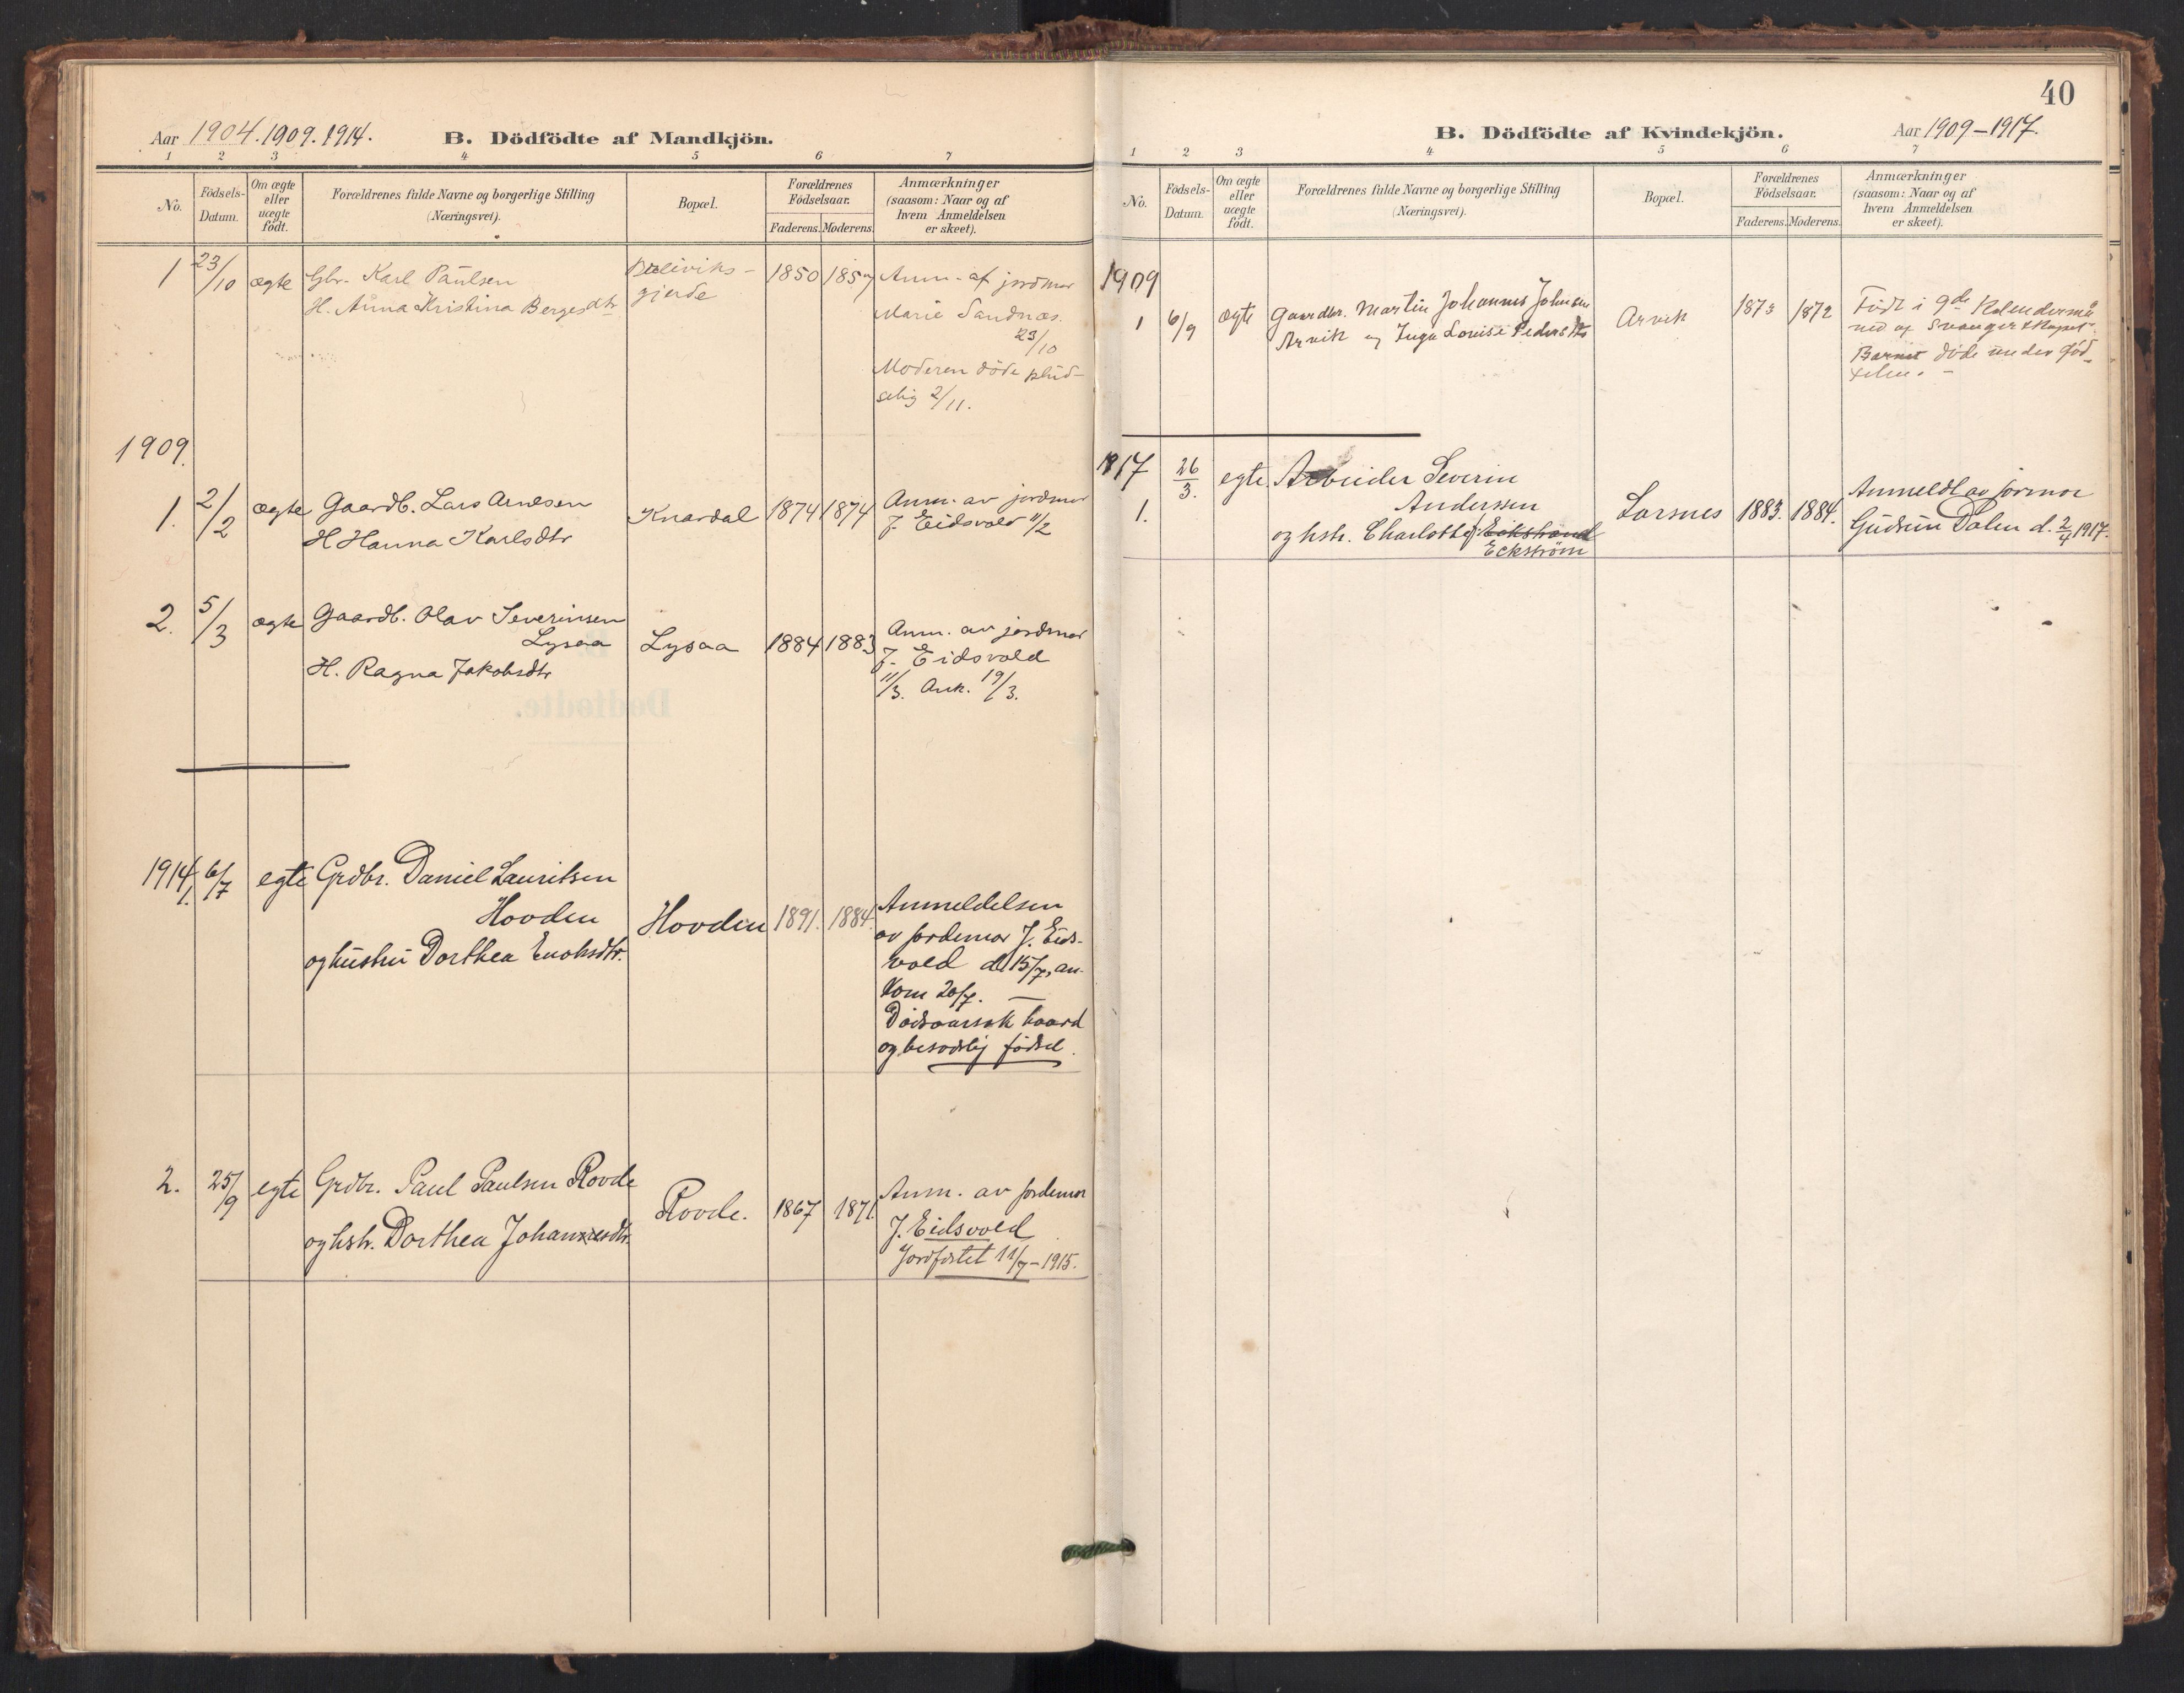 Aar 1904. 1909. 1914.
B. Dödfödte af Mandkjön.
1 2 3 4 5 6 7
No.
Födsels-
Datum.
Om ægte
eller
uægte
födt.
Forældrenes fulde Navne og borgerlige Stilling
(Næringsvei).
Bopæl.
Forældrenes
Födselsaar.
Faderens. Moderens.
Anmærkninger
(saasom: Naar og af
hvem Anmeldelsen
er skeet).
1 23/10 ægte Gbr. Karl Paulsen
H. Anna Kristina Bergesdtr
gjerde
1850 185
Anm. af jordmor
Marie Sandnæs.
23/10
Moderen døde plud-
selig 2/11.
1909.
1. 2/2 ægte Gaardb. Lars Arnesen
H Hanna Karlsdtr
Knardal 1874 1874
Anm. av jordmor
J. Eidsvold 11/2
2. 5/3 ægte Gaardb. Olav Severinsen
Lysaa
H. Ragna Jakobsdtr
Lysaa 1884 1883
Anm. av jordmor
J. Eidsvold
11/3. Ank. 19/3.
1914 1. 6/7 egte Grdbr. Daniel Lauritsen
Hovden
og hustru Dorthea Enoksdtr.
Hovden 1891. 1884.
Anmeldelsen
av jordemor J. Eids-
vold d. 15/7, an-
kom 20/7. —
Dødsaarsak haard
og besværlig fødsel.
2. 25/9 egte Grdbr. Paul Paulsen Rovde
og hstr. Dorthea Johannesdtr.
Rovde. 1867 1871.
Anm. av jordemor
J. Eidsvold
Jordfæstet 11/7 - 1915.
40
B. Dödfödte af Kvindekjön.
Aar 1909-1917.
1 2 3 4 5 6 7
No.
Födsels-
Datum.
Om ægte
eller
uægte
födt.
Forældrenes fulde Navne og borgerlige Stilling
(Næringsvei).
Bopæl.
Forældrenes
Födselsaar.
Faderens. Moderens.
Anmærkninger
(saasom: Naar og af
hvem Anmeldelsen
er skeet).
1909
1 6/9 ægte Gaardbr. Martin Johannes Johnsen
Arvik og Inga Louise Pedersdtr
Arvik 1873 1872
Født i 9de Kalendermå
ned af Svangerskapet.
Barnet døde under fød-
selen. -
1917 26/3. egte Arbeider Severin
1. Anderssen
og hstr. Charlotte f. Eckstrand
Eckstrøm
Larsnes 1883. 1884.
Anmeldt av jormor
Gudrun Dalen d. 2/4 1917.